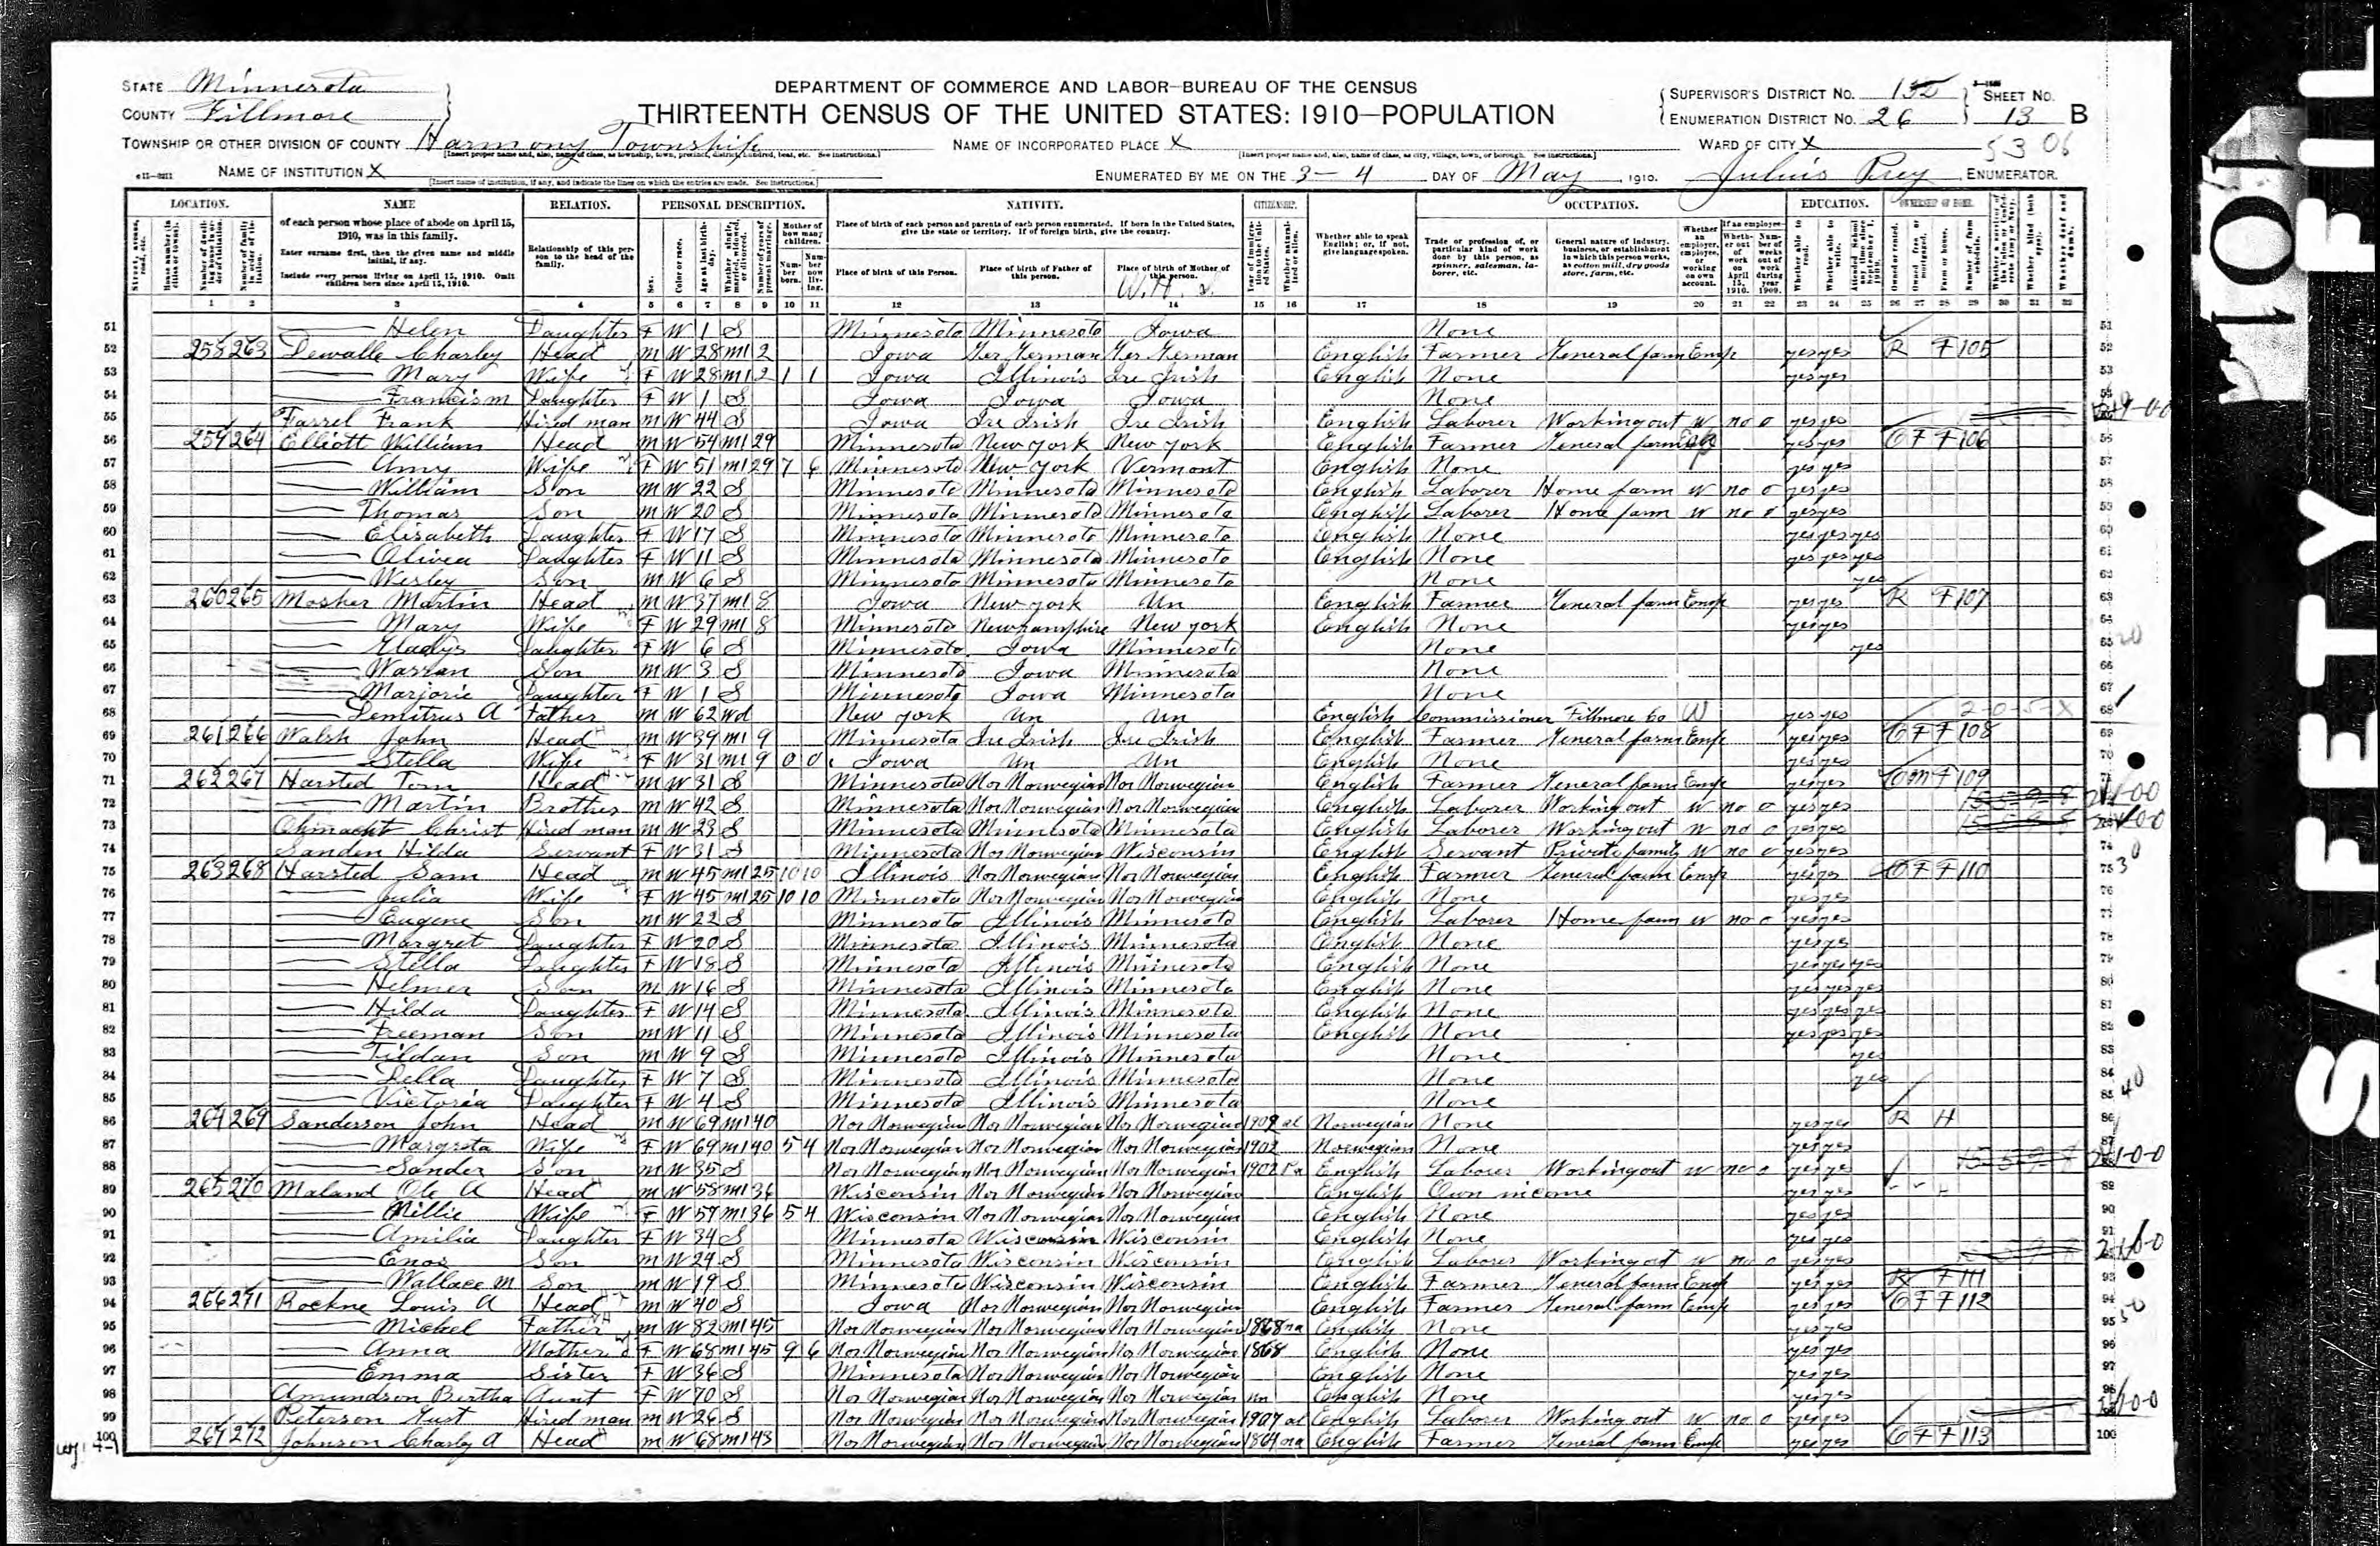 STATE Minnesota
COUNTY Fillmore
TOWNSHIP OR OTHER DIVISION OF COUNTY Harmony Township
[Insert proper name and, also, name of class, as township, town, precinct, district, hundred, beat, etc. See instructions.]
NAME OF INSTITUTION X
[Insert name of institution, if any, and indicate the lines on which the entries are made. See instructions.]
DEPARTMENT OF COMMERCE AND LABOR—BUREAU OF THE CENSUS
THIRTEENTH CENSUS OF THE UNITED STATES: 1910—POPULATION
NAME OF INCORPORATED PLACE X
[Insert proper name and, also, name of class, as city, village, town, or borough. See instructions.]
ENUMERATED BY ME ON THE 3-4 DAY OF May, 1910. Julius Prey, ENUMERATOR.
SUPERVISOR'S DISTRICT No.
ENUMERATION DISTRICT No. 26
SHEET No. 13 B
WARD OF CITY X
5306
LOCATION. NAME RELATION. PERSONAL DESCRIPTION. NATIVITY. CITIZENSHIP. OCCUPATION. EDUCATION. OWNERSHIP OF HOME.
of each person whose place of abode on April 15, 1910, was in this family.
Enter surname first, then the given name and middle initial, if any.
Include every person living on April 15, 1910. Omit children born since April 15, 1910.
Relationship of this person to the head of the family.
Place of birth of each person and parents of each person enumerated. If born in the United States, give the state or territory. If of foreign birth, give the country.
Place of birth of this Person. Place of birth of Father of this person. Place of birth of Mother of this person.
Whether able to speak English; or, if not, give language spoken.
Trade or profession of, or particular kind of work done by this person, as spinner, salesman, laborer, etc.
General nature of industry, business, or establishment in which this person works, as cotton mill, dry goods store, farm, etc.
1 2 3 4 5 6 7 8 9 10 11 12 13 14 15 16 17 18 19 20 21 22 23 24 25 26 27 28 29 30 31 32
51 — Helen Daughter F W 1 S Minnesota Minnesota Iowa None
52 258 263 Dewalle Charley Head M W 28 M1 2 Iowa Ger German Ger German English Farmer General farm Emp yes yes R F 105
53 — Mary Wife F W 28 M1 2 1 1 Iowa Illinois Ire Irish English None yes yes
54 — Francis M Daughter F W 1 S Iowa Iowa Iowa None
55 Farrel Frank Hired man M W 44 S Iowa Ire Irish Ire Irish English Laborer Working out W no 0 yes yes
56 259 264 Elliott William Head M W 54 M1 29 Minnesota New York New York English Farmer General farm Emp yes yes O F F 106
57 — Amy Wife F W 51 M1 29 7 6 Minnesota New York Vermont English None yes yes
58 — William Son M W 22 S Minnesota Minnesota Minnesota English Laborer Home farm W no 0 yes yes
59 — Thomas Son M W 20 S Minnesota Minnesota Minnesota English Laborer Home farm W no 0 yes yes
60 — Elisabeth Daughter F W 17 S Minnesota Minnesota Minnesota English None yes yes yes
61 — Olivea Daughter F W 11 S Minnesota Minnesota Minnesota English None yes yes yes
62 — Wesley Son M W 6 S Minnesota Minnesota Minnesota None yes
63 260 265 Mosher Martin Head M W 37 M1 8 Iowa New York Un English Farmer General farm Emp yes yes R F 107
64 — Mary Wife F W 29 M1 8 Minnesota New hampshire New York English None yes yes
65 — Gladys Daughter F W 6 S Minnesota Iowa Minnesota None yes
66 — Warran Son M W 3 S Minnesota Iowa Minnesota None
67 — Marjorie Daughter F W 1 S Minnesota Iowa Minnesota None
68 — Demitrus A Father M W 62 Wd New York Un Un English Commissioner Fillmore Co W yes yes 2-0-5-X
69 261 266 Walsh John Head M W 39 M1 9 Minnesota Ire Irish Ire Irish English Farmer General farm Emp yes yes O F F 108
70 — Stella Wife F W 31 M1 9 0 0 Iowa Un Un English None yes yes
71 262 267 Harsted Tom Head M W 31 S Minnesota Nor Norwegian Nor Norwegian English Farmer General farm Emp yes yes O M F 109
72 — Martin Brother M W 42 S Minnesota Nor Norwegian Nor Norwegian English Laborer Working out W no 0 yes yes
73 Christ Hired man M W 23 S Minnesota Minnesota Minnesota English Laborer Working out W no 0 yes yes
74 Sanden Hilda Servant F W 31 S Minnesota Nor Norwegian Wisconsin English Servant Private family W no 0 yes yes
75 263 268 Harsted Sam Head M W 45 M1 25 10 10 Illinois Nor Norwegian Nor Norwegian English Farmer General farm Emp yes yes O F F 110
76 — Julia Wife F W 45 M1 25 10 10 Minnesota Nor Norwegian Nor Norwegian English None yes yes
77 — Eugene Son M W 22 S Minnesota Illinois Minnesota English Laborer Home farm W no 0 yes yes
78 — Margret Daughter F W 20 S Minnesota Illinois Minnesota English None yes yes
79 — Stella Daughter F W 18 S Minnesota Illinois Minnesota English None yes yes yes
80 — Helmer Son M W 16 S Minnesota Illinois Minnesota English None yes yes yes
81 — Hilda Daughter F W 14 S Minnesota Illinois Minnesota English None yes yes yes
82 — Freeman Son M W 11 S Minnesota Illinois Minnesota English None yes yes yes
83 — Tildan Son M W 9 S Minnesota Illinois Minnesota None yes
84 — Della Daughter F W 7 S Minnesota Illinois Minnesota None yes
85 — Victoria Daughter F W 4 S Minnesota Illinois Minnesota None
86 264 269 Sanderson John Head M W 69 M1 40 Nor Norwegian Nor Norwegian Nor Norwegian 1902 al Norwegian None yes yes R H
87 — Margreta Wife F W 69 M1 40 5 4 Nor Norwegian Nor Norwegian Nor Norwegian 1902 Norwegian None yes yes
88 — Sander Son M W 35 S Nor Norwegian Nor Norwegian Nor Norwegian 1902 Pa English Laborer Working out W no 0 yes yes
89 265 270 Maland Ole A Head M W 58 M1 36 Wisconsin Nor Norwegian Nor Norwegian English Own income yes yes
90 — Nillie Wife F W 57 M1 36 5 4 Wisconsin Nor Norwegian Nor Norwegian English None yes yes
91 — Amilia Daughter F W 34 S Minnesota Wisconsin Wisconsin English None yes yes
92 — Enos Son M W 24 S Minnesota Wisconsin Wisconsin English Laborer Working out W no 0 yes yes
93 — Wallace M Son M W 19 S Minnesota Wisconsin Wisconsin English Farmer General farm Emp yes yes R F 111
94 266 271 Rockne Louis A Head M W 40 S Iowa Nor Norwegian Nor Norwegian English Farmer General farm Emp yes yes O F F 112
95 — Mickel Father M W 82 M1 45 Nor Norwegian Nor Norwegian Nor Norwegian 1868 na English None yes yes
96 — Anna Mother F W 68 M1 45 9 6 Nor Norwegian Nor Norwegian Nor Norwegian 1868 English None yes yes
97 — Emma Sister F W 36 S Minnesota Nor Norwegian Nor Norwegian English None yes yes
98 Amundson Bertha Aunt F W 70 S Nor Norwegian Nor Norwegian Nor Norwegian Un English None yes yes
99 Peterson Gust Hired man M W 26 S Nor Norwegian Nor Norwegian Nor Norwegian 1907 al English Laborer Working out W no 0 yes yes
100 267 272 Johnson Charley A Head M W 68 M1 43 Nor Norwegian Nor Norwegian Nor Norwegian 1864 na English Farmer General farm Emp yes yes O F F 113
SAFETY FIL